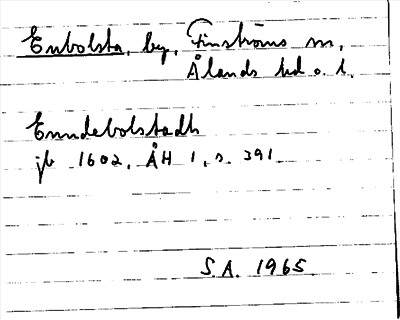 Enbolsta, by, Finströms sn,
Ålands hd o. l.
Enndebolstadh
jb 1602, ÅH 1, s. 391
S.A. 1965.